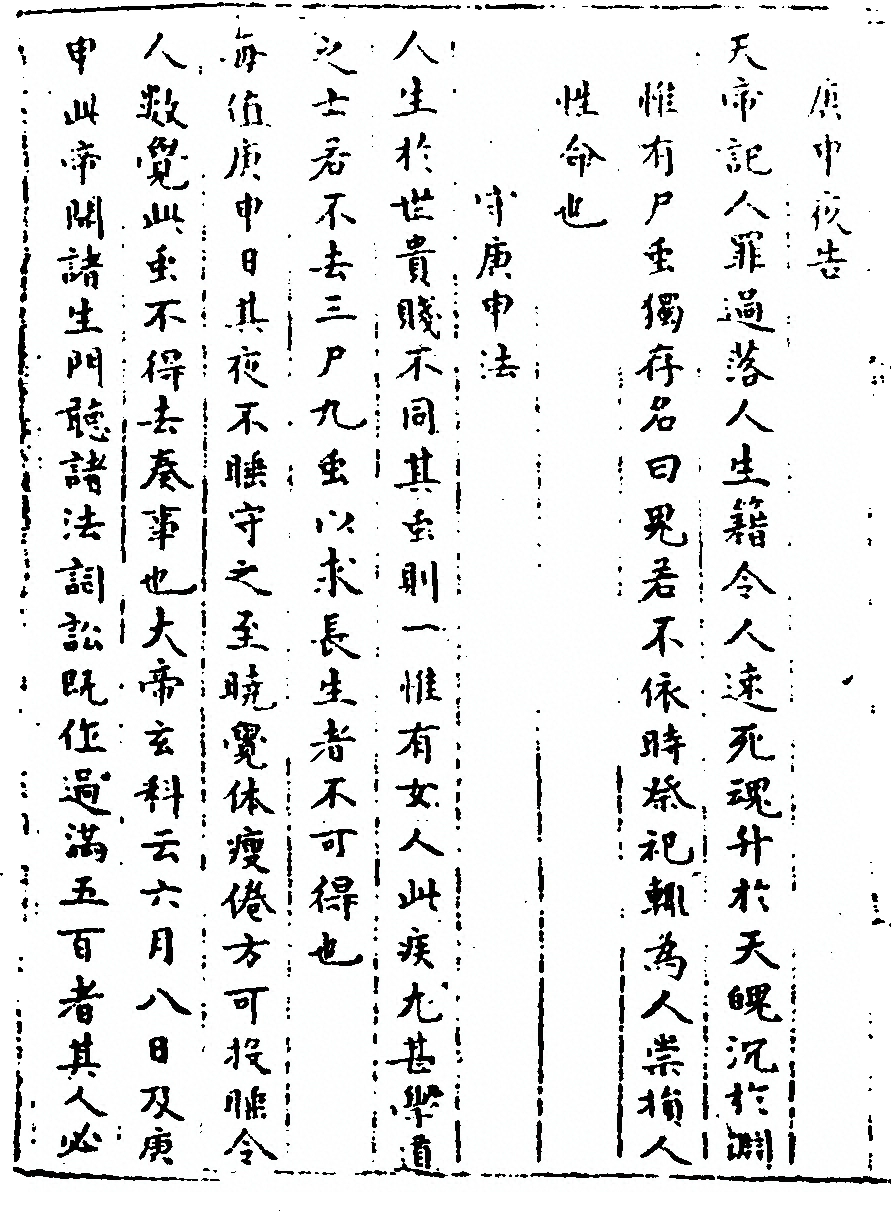 庚申夜告
天帝記人罪過落人生籍令人速死魂升於天魄沉於淵
惟有尸虫獨存名曰鬼若不依時祭祀輒為人祟損人
性命也
守庚申法
人生於世貴賤不同其虫則一惟有女人此疾尤甚學道
之士若不去三尸九虫以求長生者不可得也
每值庚申日其夜不睡守之至曉覺体瘦倦方可投睡令
人数覺此虫不得去奏事也大帝玄科云六月八日及庚
申此帝開諸生門聽諸法詞訟既作過滿五百者其人必